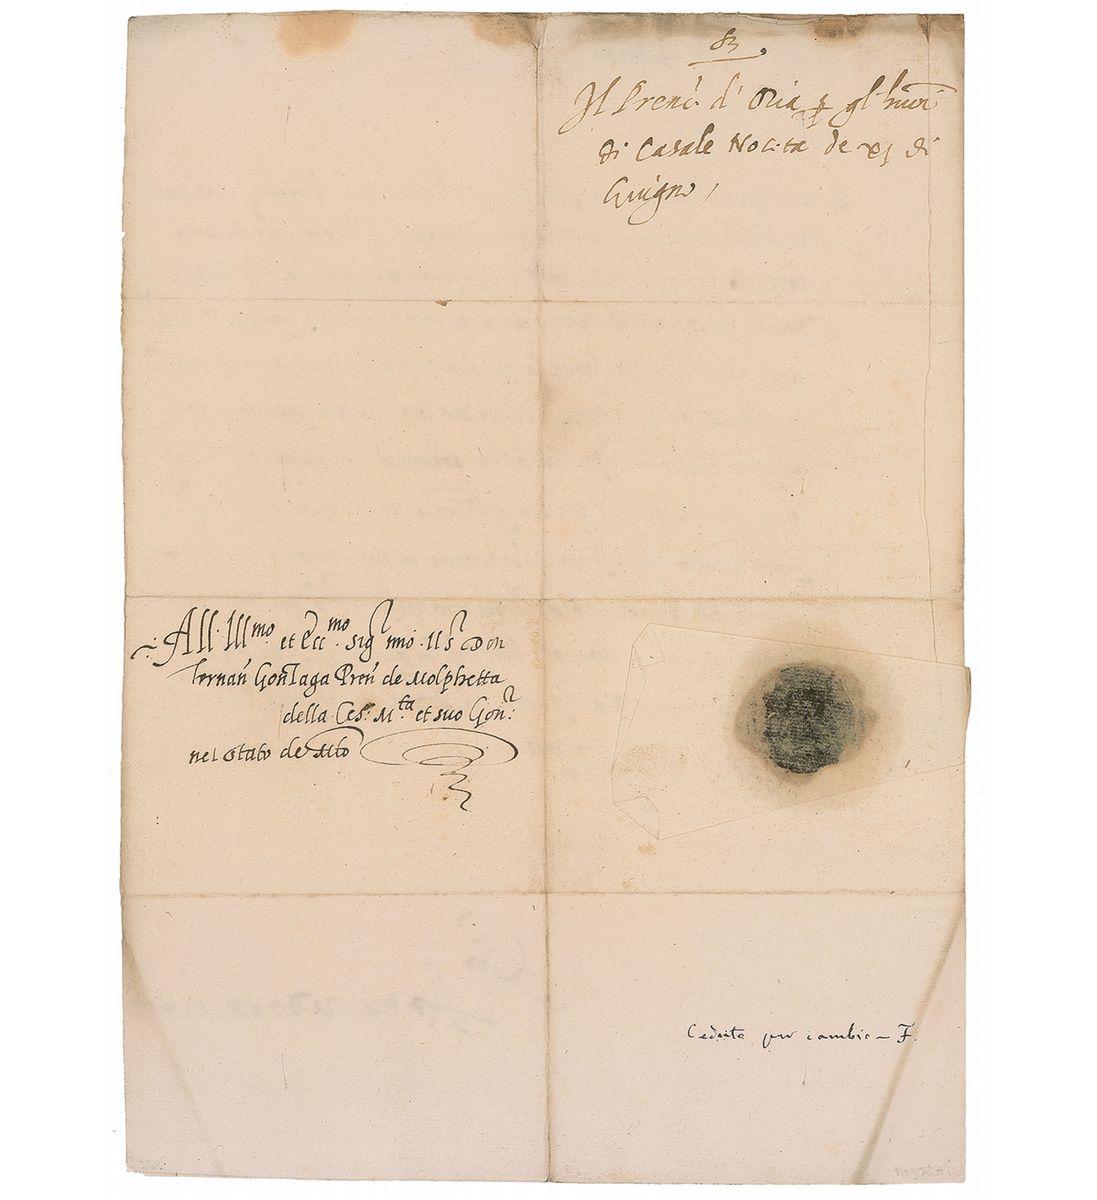 83
Il Prenᵉ d'Oria p gl'huoi
di Casale Nocita de xj di
Giugno,
All Illmo et Eccmo Sigr mio Il Sr Don
ferran Gonzaga Pren de Molphetta
della Ces. M.ta et suo Gonr:
nel Stato de Mlo
Ceduta per cambio – F.